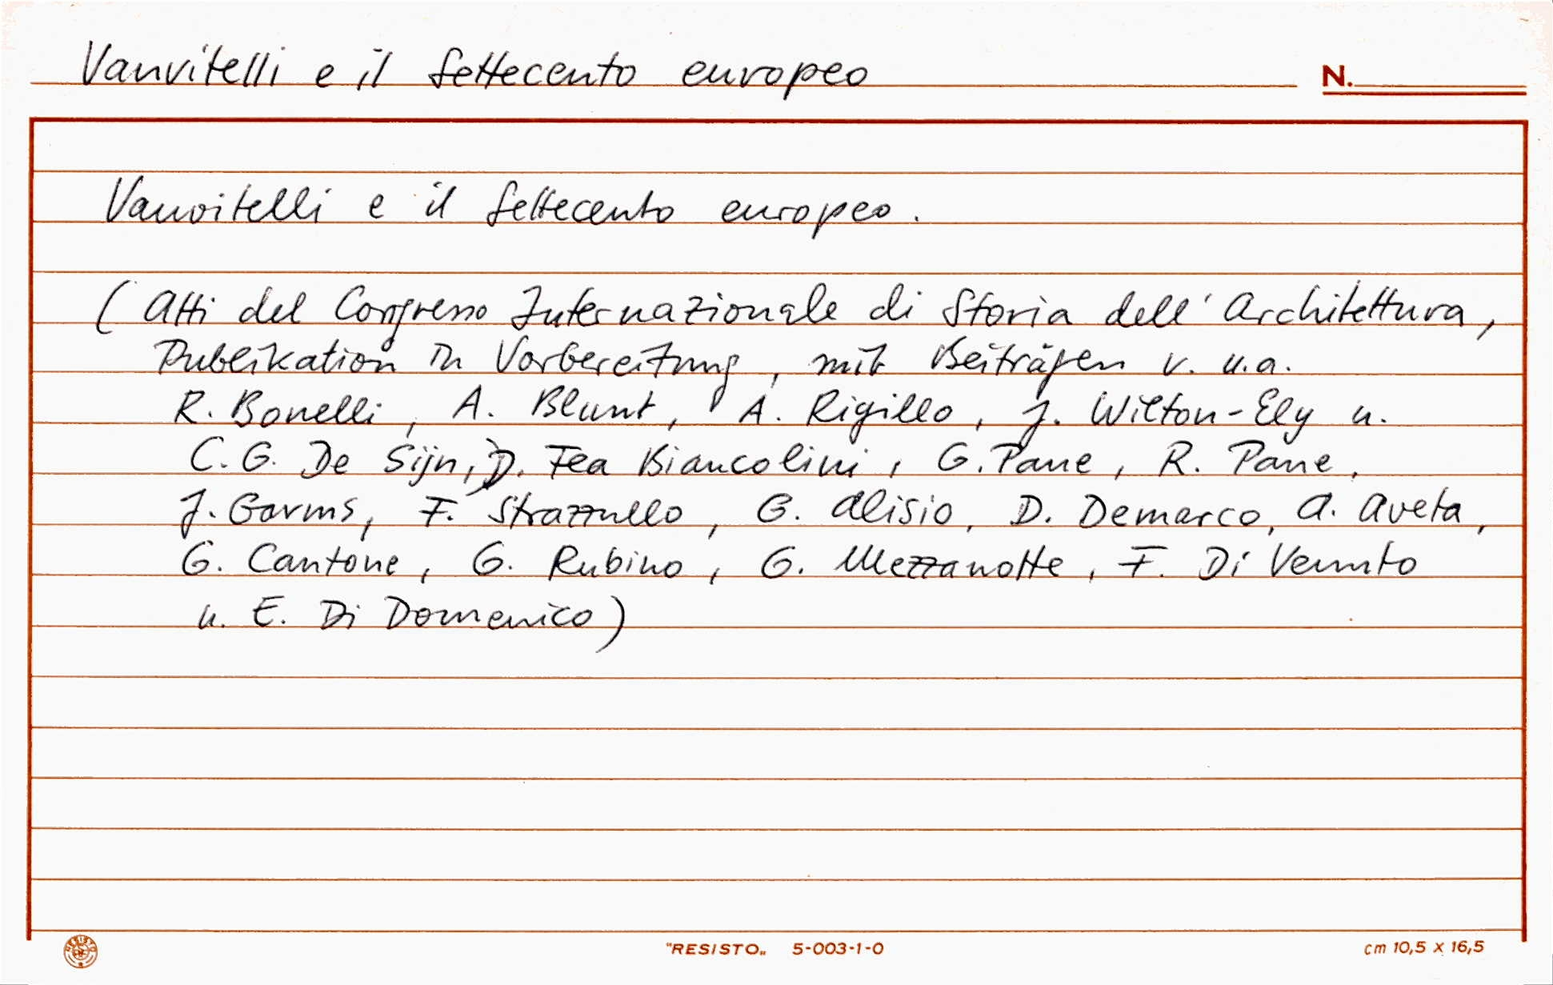 Vanvitelli e il Settecento europeo
N.
Vanvitelli e il Settecento europeo.
( Atti del Congresso Internazionale di Storia dell'Architettura,
Publikation in Vorbereitung, mit Beiträgen v. u.a.
R. Bonelli, A. Blunt, A. Rigillo, J. Wilton-Ely u.
C.G. De Sijn, D. Fea Biancolini, G. Pane, R. Pane,
J. Garms, F. Strazzullo, G. Alisio, D. Demarco, A. Aveta,
G. Cantone, G. Rubino, G. Mezzanotte, F. Di Vennto
u. E. Di Domenico)
RESISTO
"RESISTO„ 5-003-1-0
cm 10,5 x 16,5